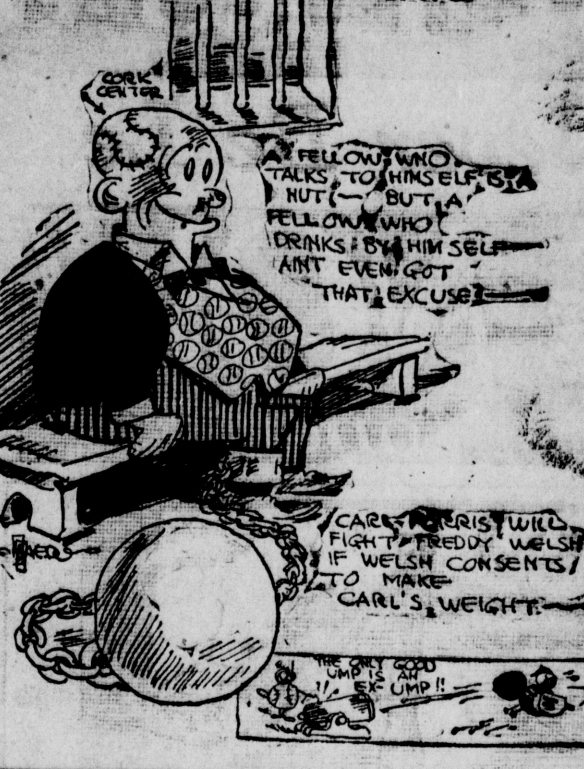 CORK
CENTER
A FELLOW WHO
TALKS TO HIMSELF IS A
NUT — BUT A
FELLOW WHO
DRINKS BY HIMSELF
AINT EVEN GOT
THAT EXCUSE
CARL MORRIS WILL
FIGHT FREDDY WELSH
IF WELSH CONSENTS
TO MAKE
CARL'S WEIGHT.
THE ONLY GOOD
UMP IS AN
EX-UMP!!